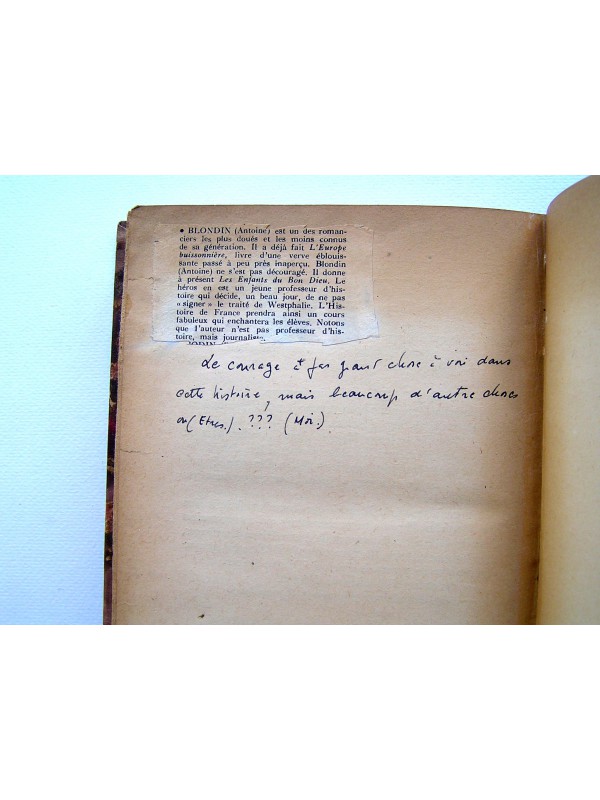 • BLONDIN (Antoine) est un des roman-
ciers les plus doués et les moins connus
de sa génération. Il a déjà fait L'Europe
buissonnière, livre d'une verve éblouis-
sante passé à peu près inaperçu. Blondin
(Antoine) ne s'est pas découragé. Il donne
à présent Les Enfants du Bon Dieu. Le
héros en est un jeune professeur d'his-
toire qui décide, un beau jour, de ne pas
« signer » le traité de Westphalie. L'His-
toire de France prendra ainsi un cours
fabuleux qui enchantera les élèves. Notons
que l'auteur n'est pas professeur d'his-
toire, mais journaliste.
Le courage a pas grand chose à voir dans
cette histoire, mais beaucoup d'autre choses
ou (Etres.) ??? (Moi.)